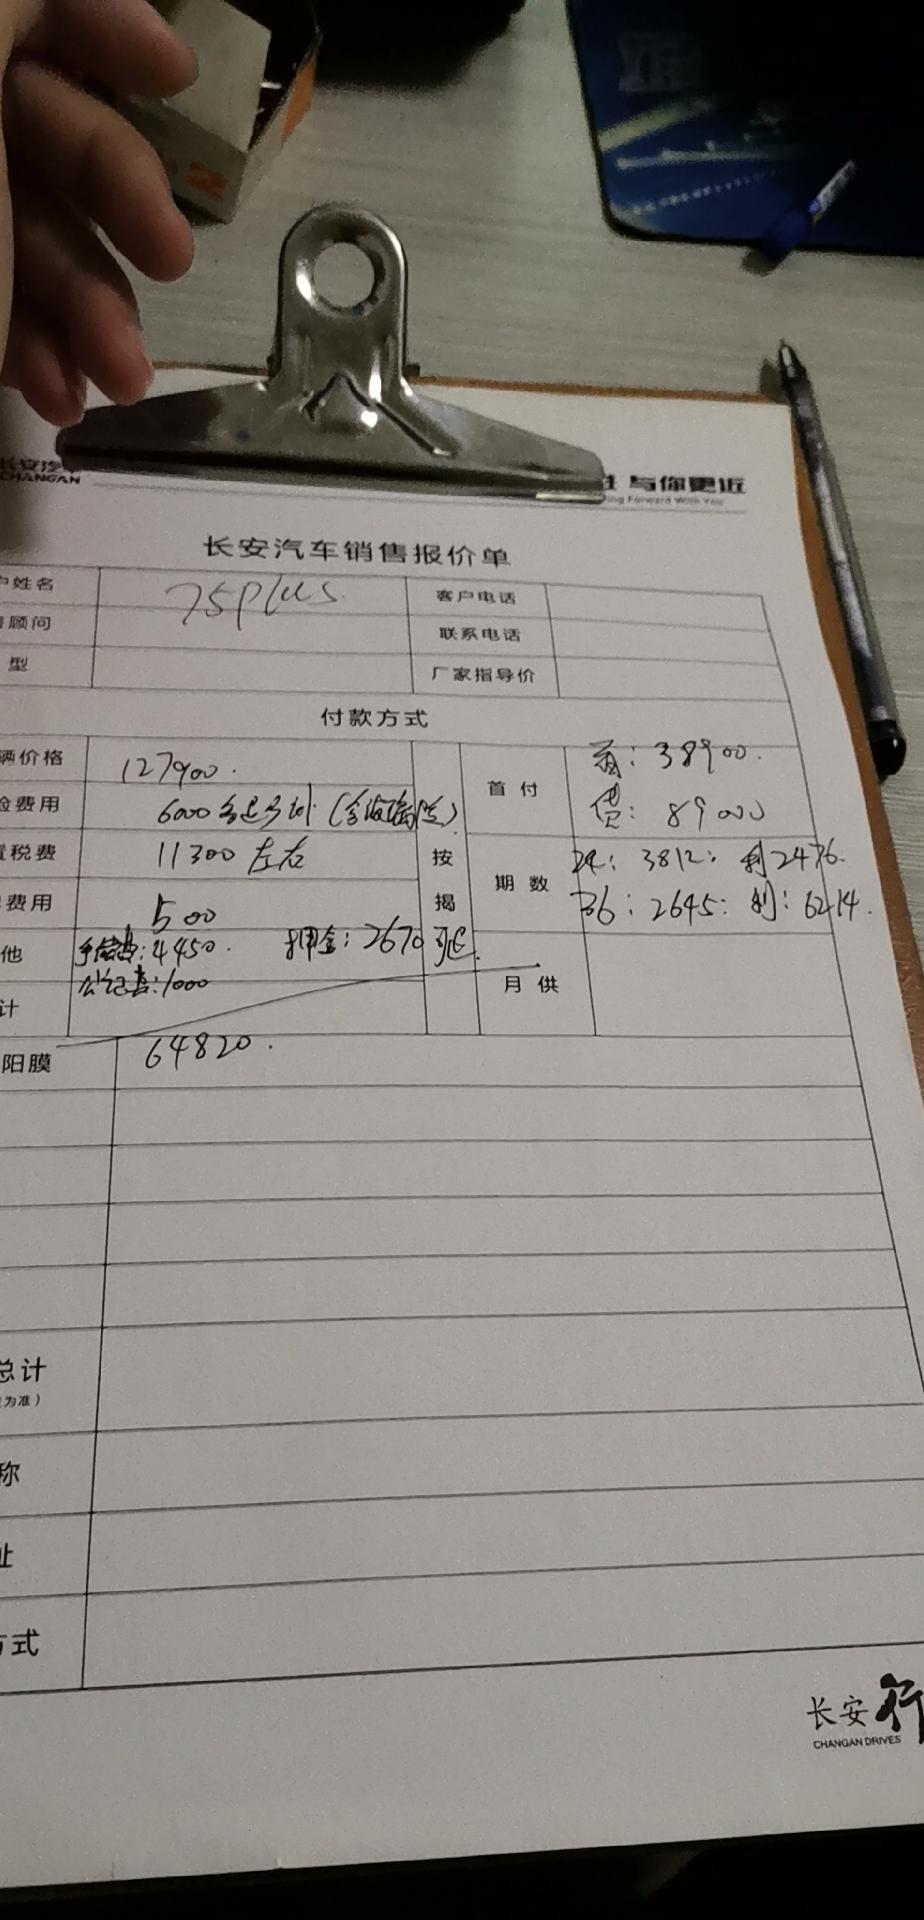 长安汽车
CHANGAN
与你更近
ing Forward With You
长安汽车销售报价单
户姓名 75plus 客户电话
顾问 联系电话
型 厂家指导价
付款方式
辆价格 127900.
险费用 6000多退少补(含玻璃险)
置税费 11300左右
费用 500
他 手续费:4450. 押金:2670 可退.
公证费:1000
计
按揭
首付 首:38900.
贷:89000
期数 24:3812: 利2476.
36:2645: 利:6214.
月供
阳膜 64820.
总计
为准)
称
址
方式
长安行
CHANGAN DRIVES